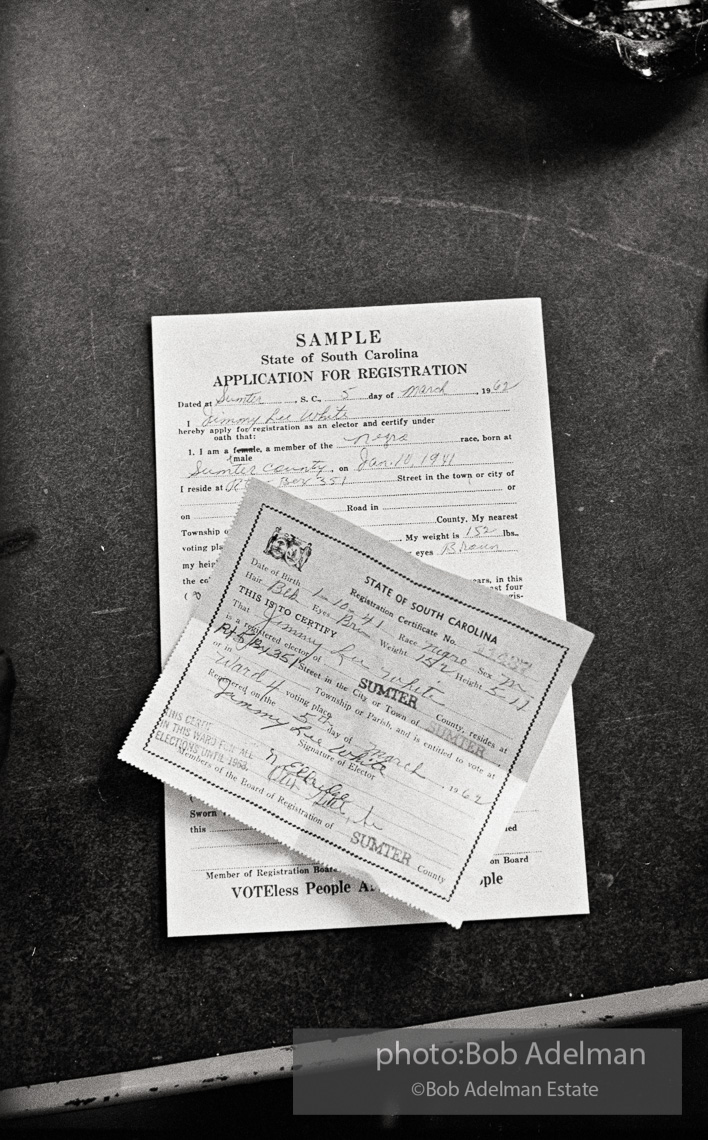 SAMPLE
State of South Carolina
APPLICATION FOR REGISTRATION
Dated at Sumter, S. C., 5 day of March, 1962
I Jimmy Lee White
hereby apply for registration as an elector and certify under
oath that:
1. I am a female, a member of the negro race, born at
male
Sumter County, on Jan. 10, 1941
I reside at Box 351 Street in the town or city of
or
on Road in
County. My nearest
Township
voting pla My weight is 152 lbs.,
my heig eyes Brown
the co ars, in this
st four
gis-
STATE OF SOUTH CAROLINA
Registration Certificate No.
Date of Birth 1-10-41 Race negro Sex M
Hair Blk Eyes Brn Weight 152 Height 5-11
THIS IS TO CERTIFY
That Jimmy Lee White
is a registered elector of SUMTER County, resides at
Bx 351 Street in the City or Town of SUMTER,
or in Township or Parish, and is entitled to vote at
Ward 4 voting place
Registered on the 5th day of March, 1962
Jimmy Lee White
Signature of Elector
THIS CERTIF
IN THIS WARD FOR ALL
ELECTIONS UNTIL 1968.
Members of the Board of Registration of SUMTER County
Sworn
this
Member of Registration Boar on Board
VOTEless People A ple
photo:Bob Adelman
©Bob Adelman Estate